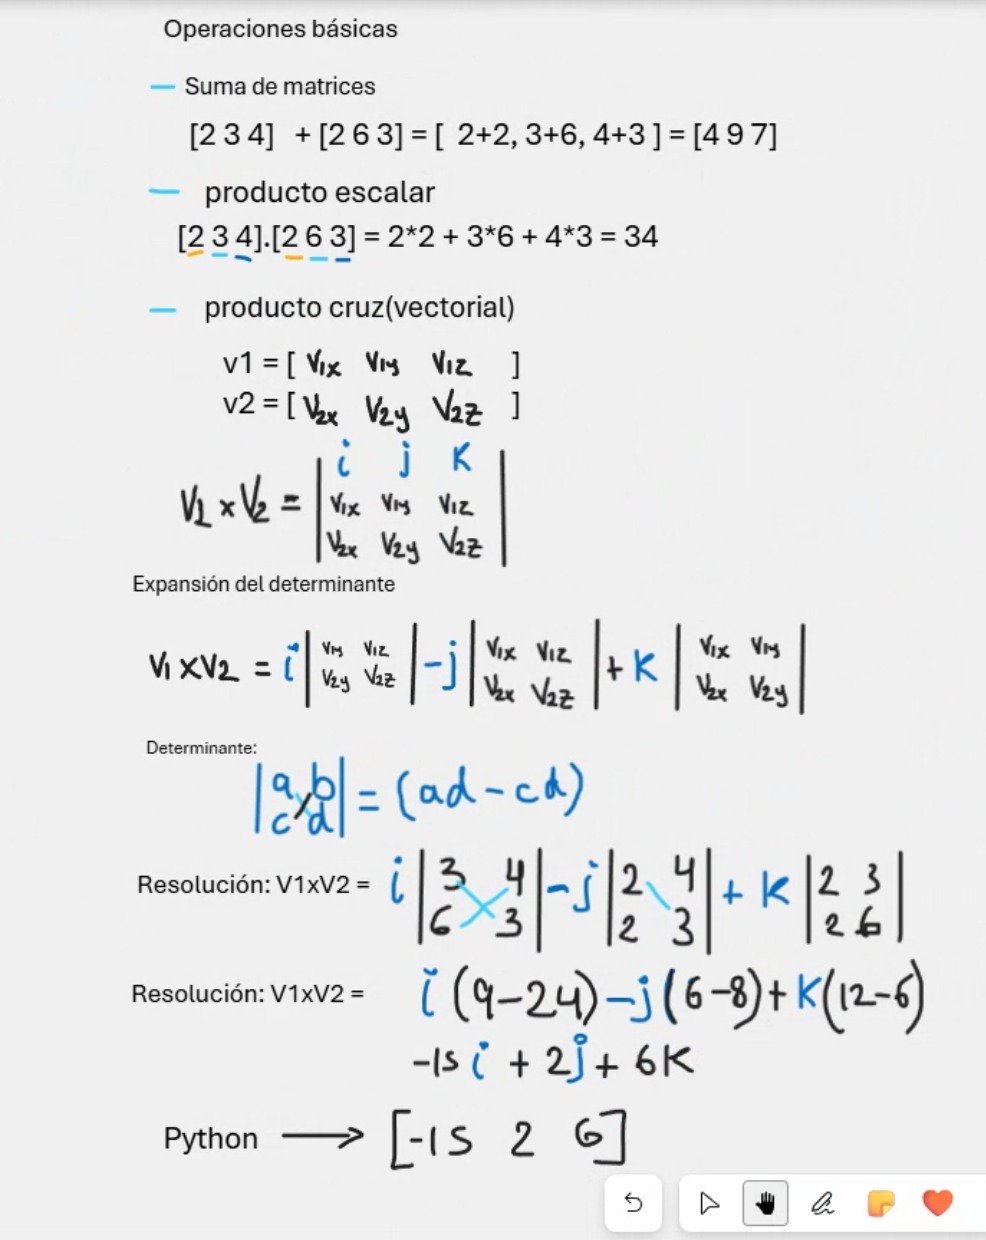 Operaciones básicas
— Suma de matrices
[2 3 4] + [2 6 3] = [ 2+2, 3+6, 4+3 ] = [4 9 7]
— producto escalar
[2 3 4].[2 6 3] = 2*2 + 3*6 + 4*3 = 34
— producto cruz(vectorial)
v1 = [ V1x V1y V1z ]
v2 = [ V2x V2y V2z ]
i j K
V1 x V2 = | V1x V1y V1z |
V2x V2y V2z
Expansión del determinante
V1 X V2 = i | V1y V1z | - j | V1x V1z | + K | V1x V1y |
V2y V2z V2x V2z V2x V2y
Determinante:
| a b | = (ad - cd)
c d
Resolución: V1xV2 = i | 3 4 | - j | 2 4 | + K | 2 3 |
6 3 2 3 2 6
Resolución: V1xV2 = i (9-24) - j (6-8) + K (12-6)
-15 i + 2j + 6K
Python → [-15 2 6]